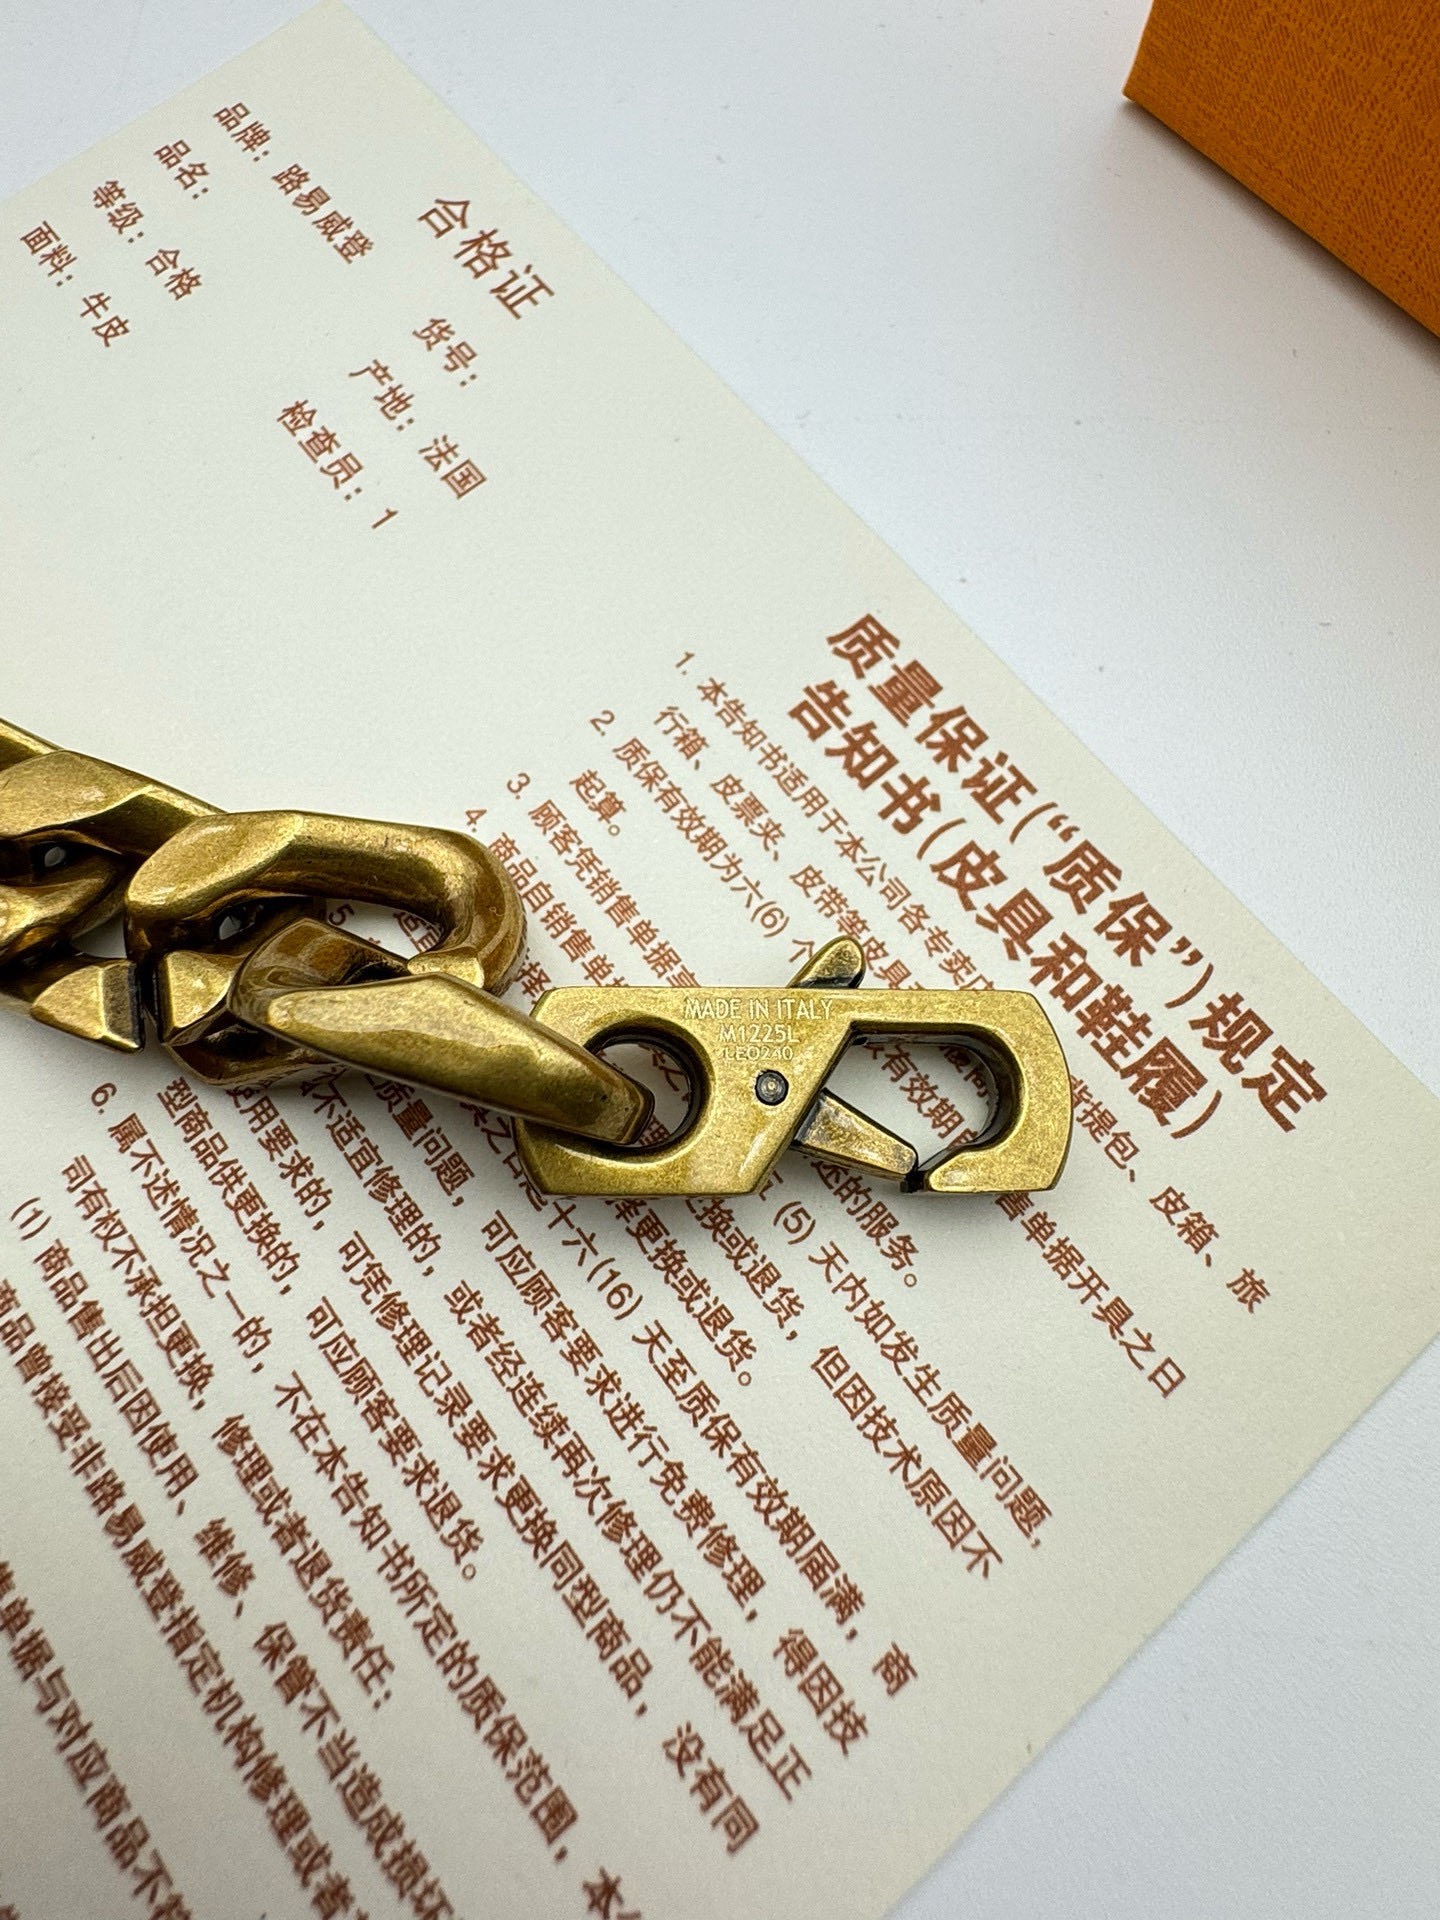 合格证
品牌：路易威登
货号：
品名：
产地：法国
等级：合格
检查员：1
面料：牛皮
质量保证(“质保”)规定
告知书(皮具和鞋履)
1. 本告知书适用于本公司各专卖
背提包、皮箱、旅
行箱、皮票夹、皮带等皮具
2. 质保有效期为六(6)个
售单据开具之日
起算。
3. 顾客凭销售单据
有效期
述的服务。
4. 商品自销售单
(5) 天内如发生质量问题，
择更换或退货。
更换或退货，但因技术原因不
5
十六(16) 天至质保有效期届满，商
质量问题，可应顾客要求进行免费修理，得因技
不适宜修理的，或者经连续再次修理仍不能满足正
使用要求的，可凭修理记录要求更换同型商品，没有同
型商品供更换的，可应顾客要求退货。
6. 属下述情况之一的，不在本告知书所定的质保范围，本
司有权不承担更换，修理或者退货责任：
(1) 商品售出后因使用、维修、保管不当造成损坏
商品曾接受非路易威登指定机构修理或者
售单据与对应商品不
MADE IN ITALY
M1225L
LE0240